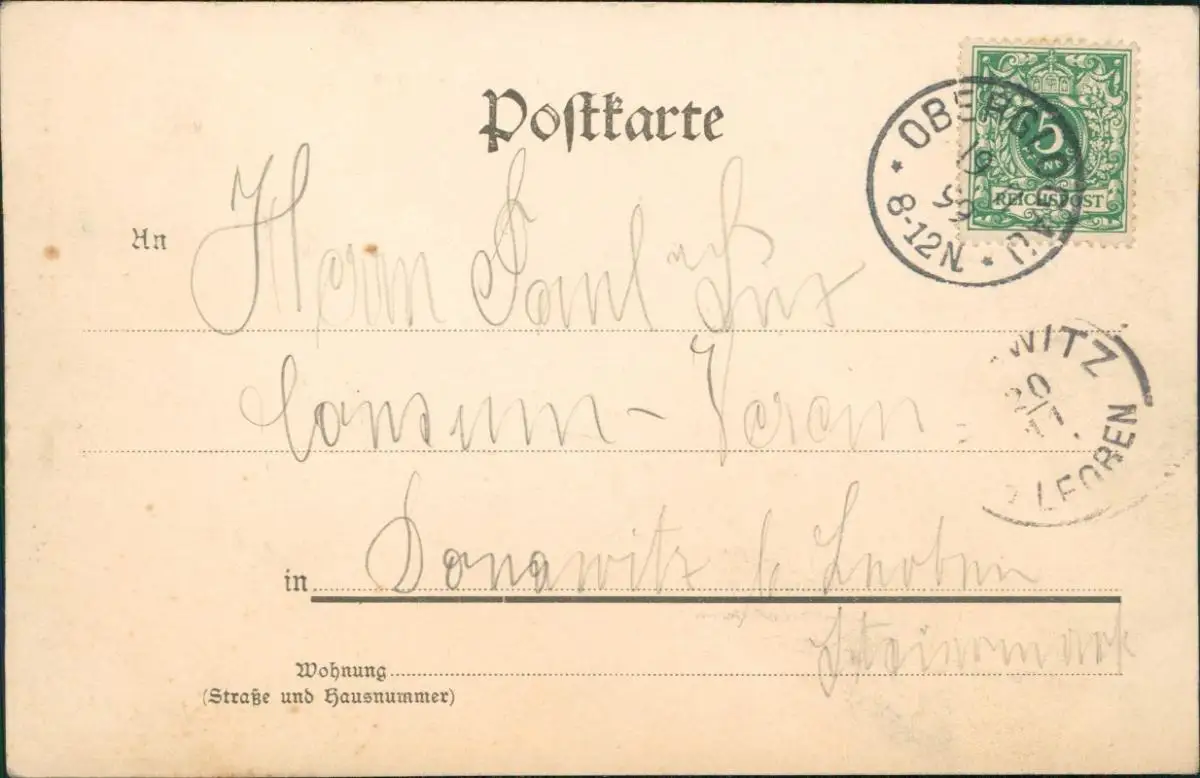 Postkarte
5
PFENNIG
REICHSPOST
19
99
8-12N.
An Herrn Paul
Consum-Verein
WITZ
20
11
LEOBEN
in Donawitz b/ Leoben
Steiermark
Wohnung
(Straße und Hausnummer)